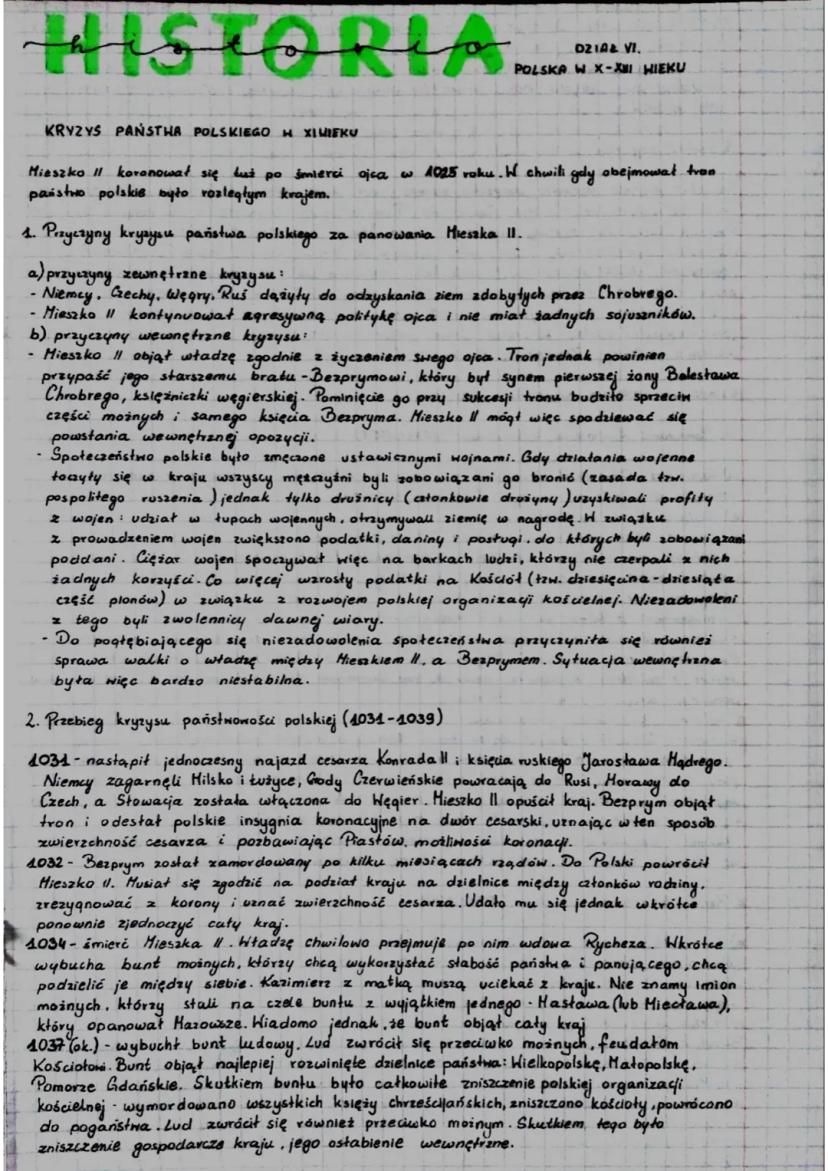 HISTORIA
historia
DZIAŁ VI.
POLSKA W X-XIII WIEKU
KRYZYS PAŃSTWA POLSKIEGO W XI WIEKU
Mieszko II koronował się tuż po śmierci ojca w 1025 roku. W chwili gdy obejmował tron
państwo polskie było rozległym krajem.
1. Przyczyny kryzysu państwa polskiego za panowania Mieszka II.
a) przyczyny zewnętrzne kryzysu:
- Niemcy, Czechy, Węgry, Ruś dążyły do odzyskania ziem zdobytych przez Chrobrego.
- Mieszko II kontynuował agresywną politykę ojca i nie miał żadnych sojuszników.
b) przyczyny wewnętrzne kryzysu:
- Mieszko II objął władzę zgodnie z życzeniem swego ojca. Tron jednak powinien
przypaść jego starszemu bratu - Bezprymowi, który był synem pierwszej żony Bolesława
Chrobrego, księżniczki węgierskiej. Pominięcie go przy sukcesji tronu budziło sprzeciw
części możnych i samego księcia Bezpryma. Mieszko II mógł więc spodziewać się
powstania wewnętrznej opozycji.
- Społeczeństwo polskie było zmęczone ustawicznymi wojnami. Gdy działania wojenne
toczyły się w kraju wszyscy mężczyźni byli zobowiązani go bronić (zasada tzw.
pospolitego ruszenia) jednak tylko drużnicy (członkowie drużyny) uzyskiwali profity
z wojen: udział w łupach wojennych, otrzymywali ziemię w nagrodę. W związku
z prowadzeniem wojen zwiększono podatki, daniny i posługi, do których byli zobowiązani
poddani. Ciężar wojen spoczywał więc na barkach ludzi, którzy nie czerpali z nich
żadnych korzyści. Co więcej wzrosły podatki na Kościół (tzw. dziesięcina - dziesiąta
część plonów) w związku z rozwojem polskiej organizacji kościelnej. Niezadowoleni
z tego byli zwolennicy dawnej wiary.
- Do pogłębiającego się niezadowolenia społeczeństwa przyczyniła się również
sprawa walki o władzę między Mieszkiem II, a Bezprymem. Sytuacja wewnętrzna
była więc bardzo niestabilna.
2. Przebieg kryzysu państwowości polskiej (1031-1039)
1031 - nastąpił jednoczesny najazd cesarza Konrada II i księcia ruskiego Jarosława Mądrego.
Niemcy zagarnęli Milsko i Łużyce, Grody Czerwieńskie powracają do Rusi, Morawy do
Czech, a Słowacja została włączona do Węgier. Mieszko II opuścił kraj. Bezprym objął
tron i odesłał polskie insygnia koronacyjne na dwór cesarski, uznając w ten sposób
zwierzchność cesarza i pozbawiając Piastów, możliwości koronacji.
1032 - Bezprym został zamordowany po kilku miesiącach rządów. Do Polski powrócił
Mieszko II. Musiał się zgodzić na podział kraju na dzielnice między członków rodziny,
zrezygnować z korony i uznać zwierzchność cesarza. Udało mu się jednak wkrótce
ponownie zjednoczyć cały kraj.
1034 - śmierć Mieszka II. Władzę chwilowo przejmuje po nim wdowa Rycheza. Wkrótce
wybucha bunt możnych, którzy chcą wykorzystać słabość państwa i panującego, chcą
podzielić je między siebie. Kazimierz z matką muszą uciekać z kraju. Nie znamy imion
możnych, którzy stali na czele buntu z wyjątkiem jednego - Masława (lub Miecława),
który opanował Mazowsze. Wiadomo jednak, że bunt objął cały kraj
1037 (ok.) - wybuchł bunt ludowy. Lud zwrócił się przeciwko możnym, feudałom
Kościołowi. Bunt objął najlepiej rozwinięte dzielnice państwa: Wielkopolskę, Małopolskę,
Pomorze Gdańskie. Skutkiem buntu było całkowite zniszczenie polskiej organizacji
kościelnej - wymordowano wszystkich księży chrześcijańskich, zniszczono kościoły, powrócono
do pogaństwa. Lud zwrócił się również przeciwko możnym. Skutkiem tego było
zniszczenie gospodarcze kraju, jego osłabienie wewnętrzne.